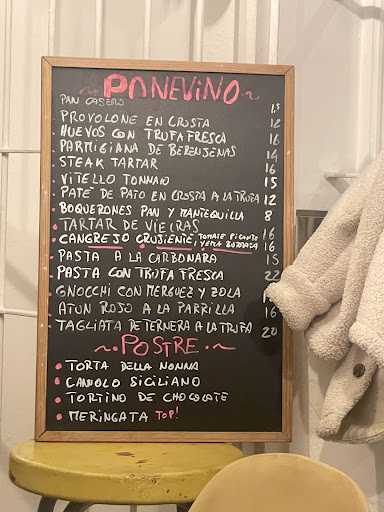 ~PANEVINO~
PAN CASERO 1.5
PROVOLONE EN CROSTA 12
HUEVOS CON TRUFA FRESCA 16
PARMIGIANA DE BERENJENAS 14
STEAK TARTAR 16
VITELLO TONNATO 15
PATÉ DE PATO EN CROSTA A LA TRUFA 12
BOQUERONES PAN Y MANTEQUILLA 8
TARTAR DE VIEIRAS 16
CANGREJO CRUJIENTE, TOMATE PICANTE Y YEMA 16
PASTA A LA CARBONARA 15
PASTA CON TRUFA FRESCA 22
GNOCCHI CON MERGUEZ Y ZOLA
ATUN ROJO A LA PARRILLA 16
TAGLIATA DE TERNERA A LA TRUFA 20
~POSTRE~
TORTA DELLA NONNA
CANNOLO SICILIANO
TORTINO DE CHOCOLATE
MERINGATA TOP!